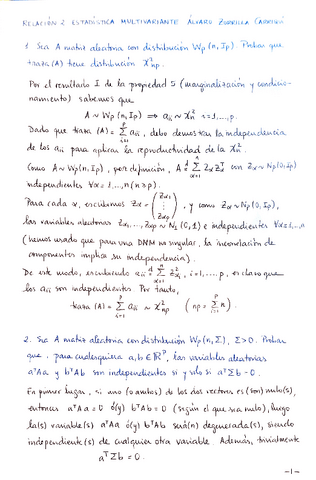 RELACIÓN 2 ESTADÍSTICA MULTIVARIANTE ÁLVARO ZORRILLA CARRIQUÍ
1. Sea A matriz aleatoria con distribución Wp(n, Ip). Probar que
traza(A) tiene distribución χ²np.
Por el resultado I de la propiedad 5 (marginalización y condicio-
namiento) sabemos que
A ~ Wp(n, Ip) ⇒ aii ~ χ²n i=1,...,p.
Dado que traza(A) = Σ aii, debo demostrar la independencia
de los aii para aplicar la reproductividad de la χ²n.
Como A ~ Wp(n, Ip), por definición, A =ᵈ Σ Zα Zαᵀ con Zα ~ Np(0, Ip)
independientes ∀α=1,...,n (n≥p).
Para cada α, escribimos Zα = (Zα1 ⋮ Zαp), y como Zα ~ Np(0, Ip),
las variables aleatorias Zα1,...,Zαp ~ N1(0,1) e independientes ∀α=1,...,n
(hemos usado que para una DNM no singular, la incorrelación de
componentes implica su independencia).
De este modo, escribiendo aii =ᵈ Σ Z²αi, i=1,...,p, es claro que
los aii son independientes. Por tanto,
traza(A) = Σ aii ~ χ²np (np = Σ n).
2. Sea A matriz aleatoria con distribución Wp(n, Σ), Σ>0. Probar
que, para cualesquiera a, b ∈ ℝᵖ, las variables aleatorias
aᵀAa y bᵀAb son independientes si y solo si aᵀΣb = 0.
En primer lugar, si uno (o ambos) de los dos vectores es (son) nulo(s),
entonces aᵀAa = 0 ó(y) bᵀAb = 0 (según el que sea nulo), luego
la(s) variable(s) aᵀAa ó(y) bᵀAb será(n) degenerada(s), siendo
independiente(s) de cualquier otra variable. Además, trivialmente
aᵀΣb = 0.
-1-